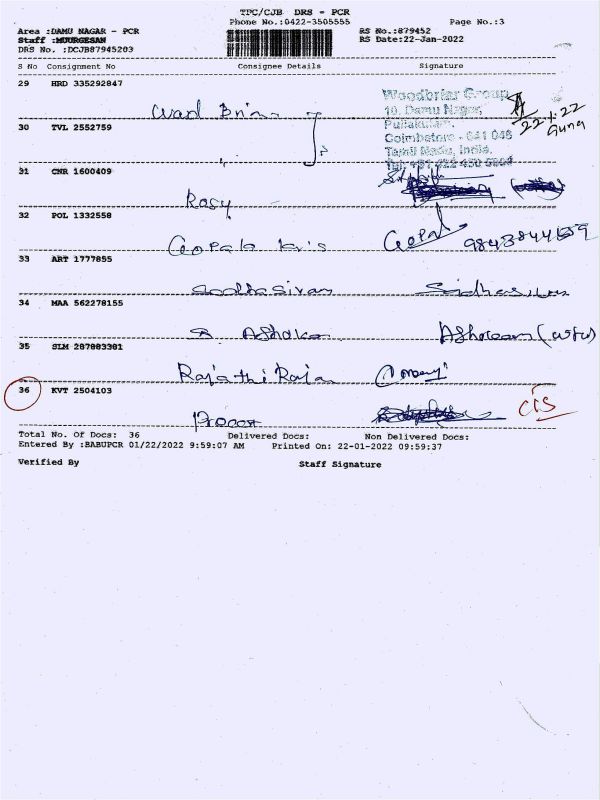 TPC/CJB DRS - PCR
Phone No.:0422-3505555 Page No.:3
Area :DAMU NAGAR - PCR RS No.:879452
Staff :MUURGESAN RS Date:22-Jan-2022
DRS No. :DCJB87945203
S No Consignment No Consignee Details Signature
29 HRD 335292847
Woodbriar Group
10, Damu Nagar,
22-1-22
30 TVL 2552759
Puliakulam,
Coimbatore - 641 045
Tamil Nadu, India.
Guna
31 CNR 1600409
Rosy
32 POL 1332558
Gopala kris Gopal 9843844659
33 ART 1777855
Sadhasivam
34 MAA 562278155
35 SLM 287883381
Rajathi Rajan
36 KVT 2504103
Total No. Of Docs: 36 Delivered Docs: Non Delivered Docs:
Entered By :BABUPCR 01/22/2022 9:59:07 AM Printed On: 22-01-2022 09:59:37
Verified By Staff Signature